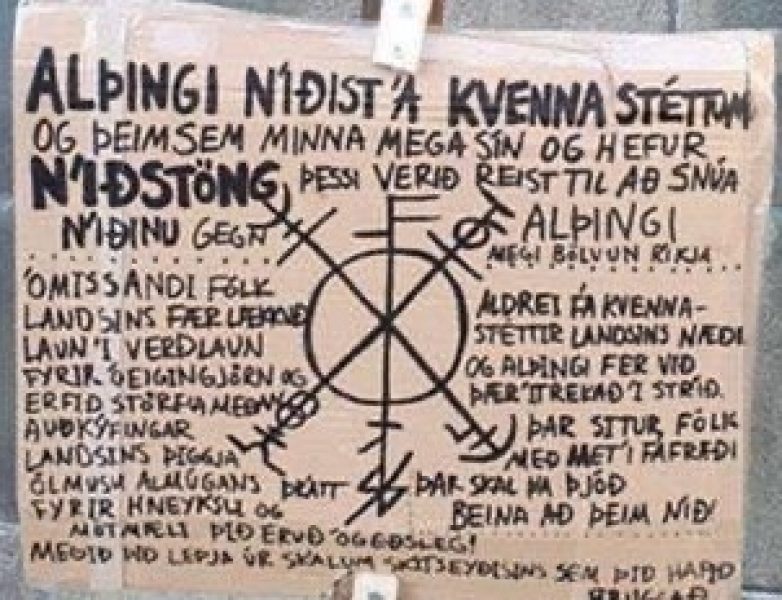 ALÞINGI NÍÐIST Á KVENNA STÉTTUM
OG ÞEIM SEM MINNA MEGA SÍN OG HEFUR
NÍÐSTÖNG ÞESSI VERIÐ REIST TIL AÐ SNÚA
NÍÐINU GEGN ALÞINGI
MEGI BÖLVUN RÍKJA
ÓMISSANDI FÓLK
LANDSINS FÆR LÆKKUÐ
LAUN Í VERÐLAUN
FYRIR ÓEIGINGJÖRN OG
ERFIÐ STÖRF Á MEÐAN
AUÐKÝFINGAR
LANDSINS ÞIGGJA
ÖLMUSU ALMÚGANS
FYRIR HNEYKSLI OG
ÞRÁTT
MÓTMÆLI ÞIÐ ERUÐ ÓGEÐSLEG!
ALDREI FÁ KVENNA-
STÉTTIR LANDSINS NÆÐI
OG ALÞINGI FER VIÐ
ÞÆR ÍTREKAÐ Í STRÍÐ.
ÞAR SITUR FÓLK
MEÐ MET Í FÁFRÆÐI
ÞAR SKAL HA ÞJÓÐ
BEINA AÐ ÞEIM NÍÐI
MEGIÐ ÞIÐ LEPJA ÚR SKÁLUM SKÍTSEYÐISINS SEM ÞIÐ HAFIÐ
BRUGGAÐ